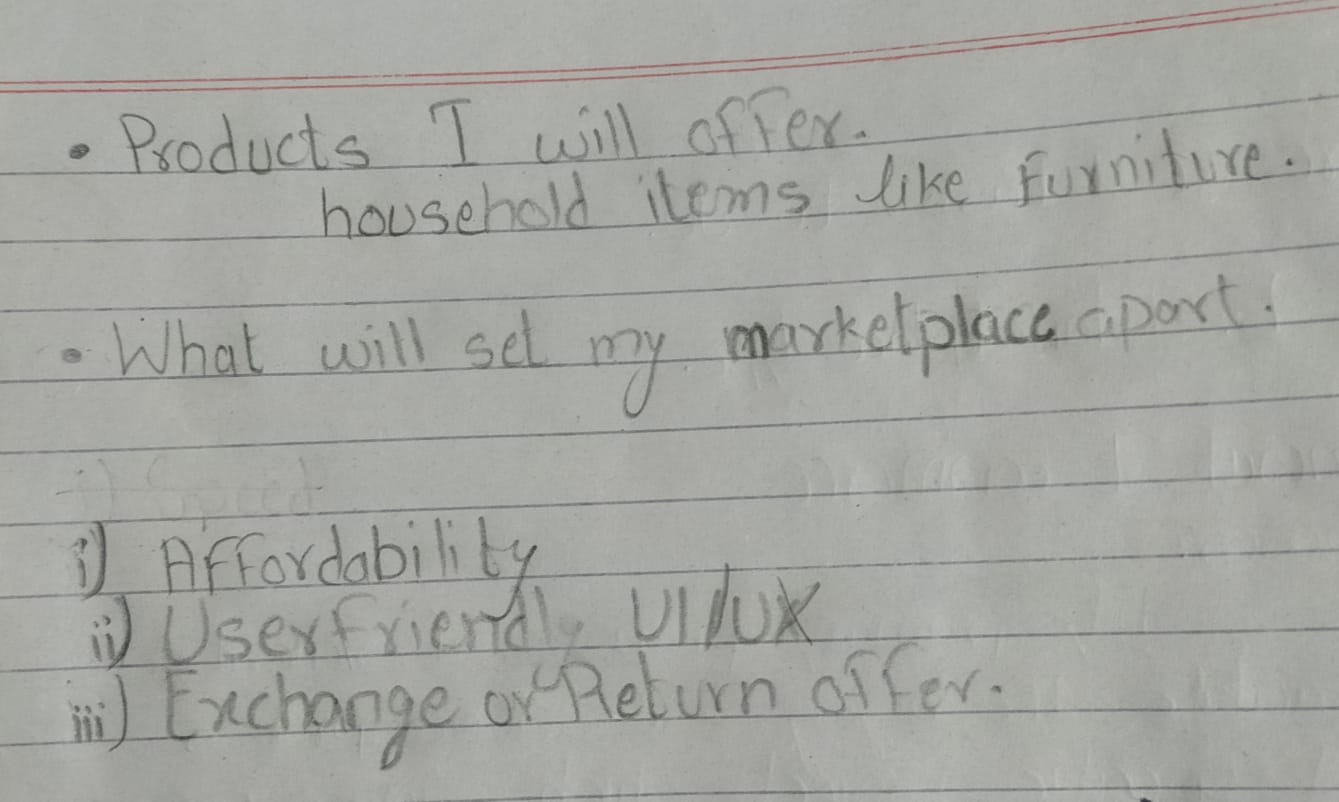 • Products I will offer.
household items like Furniture.
• What will set my marketplace apart.
i) Affordability
ii) User friendly UI/UX
iii) Exchange or Return offer.